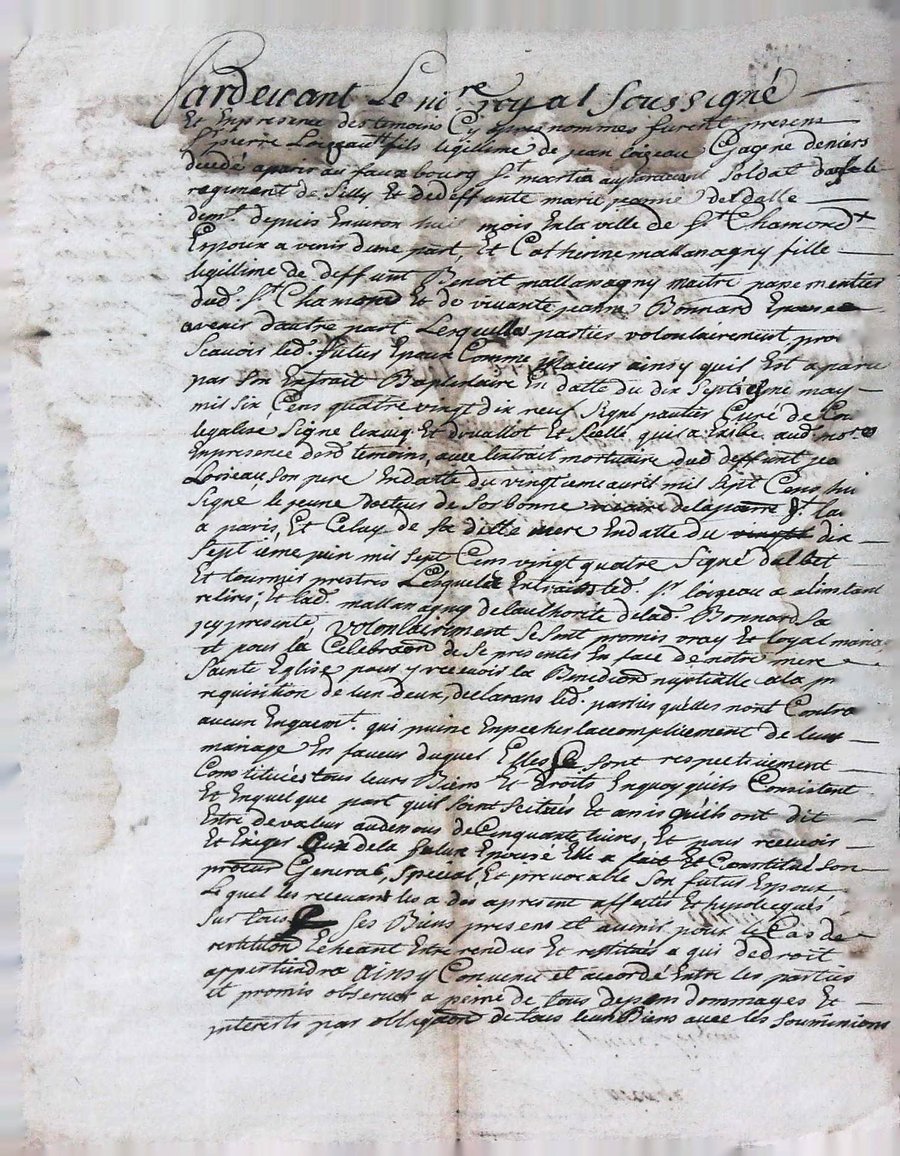 Pardevant Le nre royal soussigné
Et Enpresence des temoins Cy apres nommes furent presens
Sr pierre Loizeau fils legillime de jean loizeau Gagne deniers
decedé a paris au faux bourg St martin auparavant Soldat dans le
regiment de Silly Et de deffunte marie jeanne
demt depuis Environ mois En la ville de St Chamond
Espoux a venir dune part, Et Catherine mallanagny fille
legillime de deffunt Benoit mallanagny maitre passementier
dud. St Chamond Et de vivante jeanne Bonnard Epouse
avenir dautre part Lesquelles parties volontairement pro
Scavoir led. futur Epoux Comme Majeur ainsy quil Est aparu
par Son Extrait Baptistaire En datte du dix Septieme may
mil six Cens quatre vingt dix neuf Signé pautier Curé de
legalisé Signé Et douallot Et Scellé qui a Exibé aud. nore
Enpresence desd. temoins, avec lextrait mortuaire dud. deffunt jea
Loizeau son pere Endatte du vingtieme avril mil Sept Cens
Signé le jeune docteur de Sorbonne vicaire delaparre St. la
a paris, Et Celuy de sa ditte mere Endatte du vingt dix
Septieme juin mil Sept Cens vingt quatre Signé dalbet
Et tournus prestres Lesquels Extraits led. Sr. loizeau a alinstant
retirés; Et lad. mallanagny de lauthorité de lad. Bonnard Sa
jcy presente, volontairement Se Sont promis vray Et loyal mariage
et pour la Celebraon de Se presenter En face de notre mere
Sainte Eglise pour y recevoir la Benedicon nuptialle a la pr
requisition de lun deux, declarans led. parties quelles nont Contra
aucun Engaemt. qui puisse Enpecher laccomplicement de leur
mariage En faveur duquel Elles Se sont respectivement
Constitués tous leurs Biens Et droits Enquoy quils Consistent
Et Enquelque part quil Soint Scitués Et amis quils ont dit
Entre de valeur audenous de Cinquante livres, Et pour recevoir
Et Exiger Ceux dela futur Epouse Elle a fait Et Constitué Son
procur General, Special, Et yrevocable Son futur Espoux
Lequel les recevant les a des apresent affectés Et hipolecqués
Sur tous Ses Biens presens et avenir pour le Cas de
restitution Echeant Estre rendus Et restitués a qui de droit
appartiendra ainsy Convenu et accordé Entre les parties
Et promis observer a peine de tous depens dommages Et
interests par obligaon de tous leurs Biens avec les soumissions